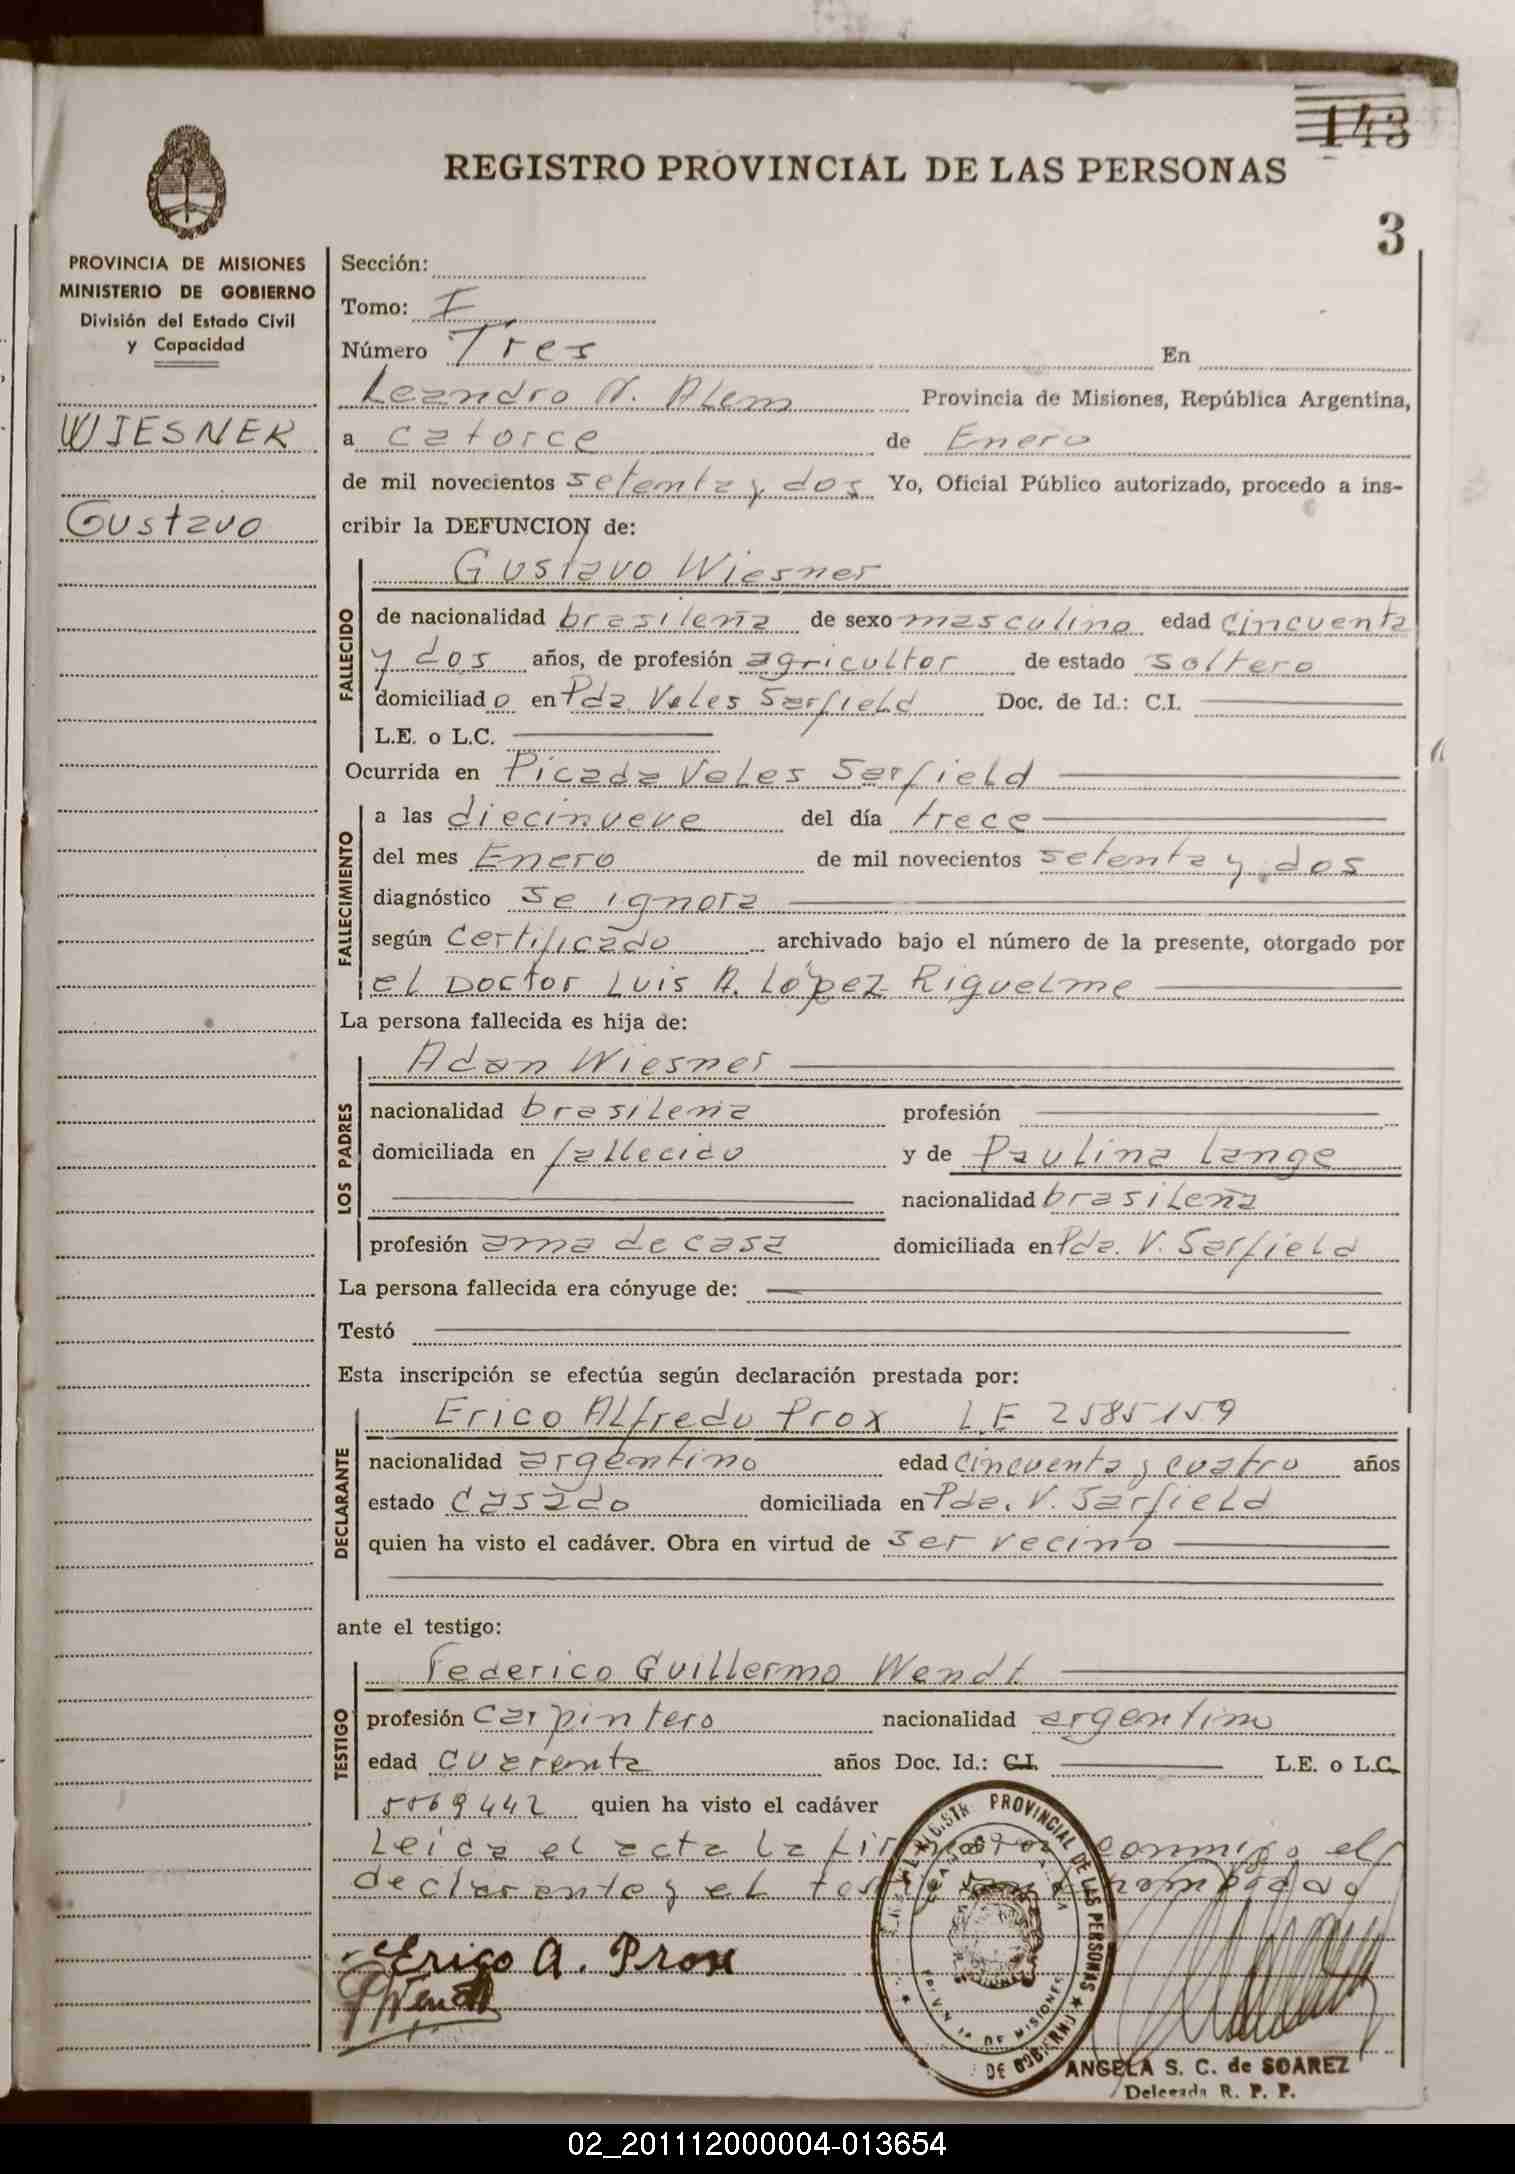 143
REGISTRO PROVINCIAL DE LAS PERSONAS
3
PROVINCIA DE MISIONES
MINISTERIO DE GOBIERNO
División del Estado Civil
y Capacidad
WIESNER
Gustavo
Sección:
Tomo: I
Número Tres En
Leandro N. Alem Provincia de Misiones, República Argentina,
a catorce de Enero
de mil novecientos setenta y dos Yo, Oficial Público autorizado, procedo a ins-
cribir la DEFUNCION de:
FALLECIDO
Gustavo Wiesner
de nacionalidad brasileña de sexo masculino edad cincuenta
y dos años, de profesión agricultor de estado soltero
domiciliado en Pda Veles Sarfield Doc. de Id.: C.I.
L.E. o L.C.
Ocurrida en Picada Veles Sarfield
FALLECIMIENTO
a las diecinueve del día trece
del mes Enero de mil novecientos setenta y dos
diagnóstico se ignora
según certificado archivado bajo el número de la presente, otorgado por
el Doctor Luis A. López Riquelme
La persona fallecida es hija de:
LOS PADRES
Adan Wiesner
nacionalidad brasileña profesión
domiciliada en fallecido y de Paulina Lange
nacionalidad brasileña
profesión ama de casa domiciliada en Pda. V. Sarfield
La persona fallecida era cónyuge de:
Testó
Esta inscripción se efectúa según declaración prestada por:
DECLARANTE
Erico Alfredo Prox L.E 2585159
nacionalidad argentino edad cincuenta y cuatro años
estado casado domiciliada en Pda. V. Sarfield
quien ha visto el cadáver. Obra en virtud de ser vecino
ante el testigo:
TESTIGO
Federico Guillermo Wendt
profesión carpintero nacionalidad argentino
edad cuarenta años Doc. Id.: C.I. L.E. o L.C.
quien ha visto el cadáver
Leida el acta la firmaron conmigo el
declarante y el
Erico A. Prox
Wendt
PROVINCIAL DE LAS PERSONAS
DE MISIONES
ANGELA S. C. de SOAREZ
Delegada R. P. P.
02_201112000004-013654